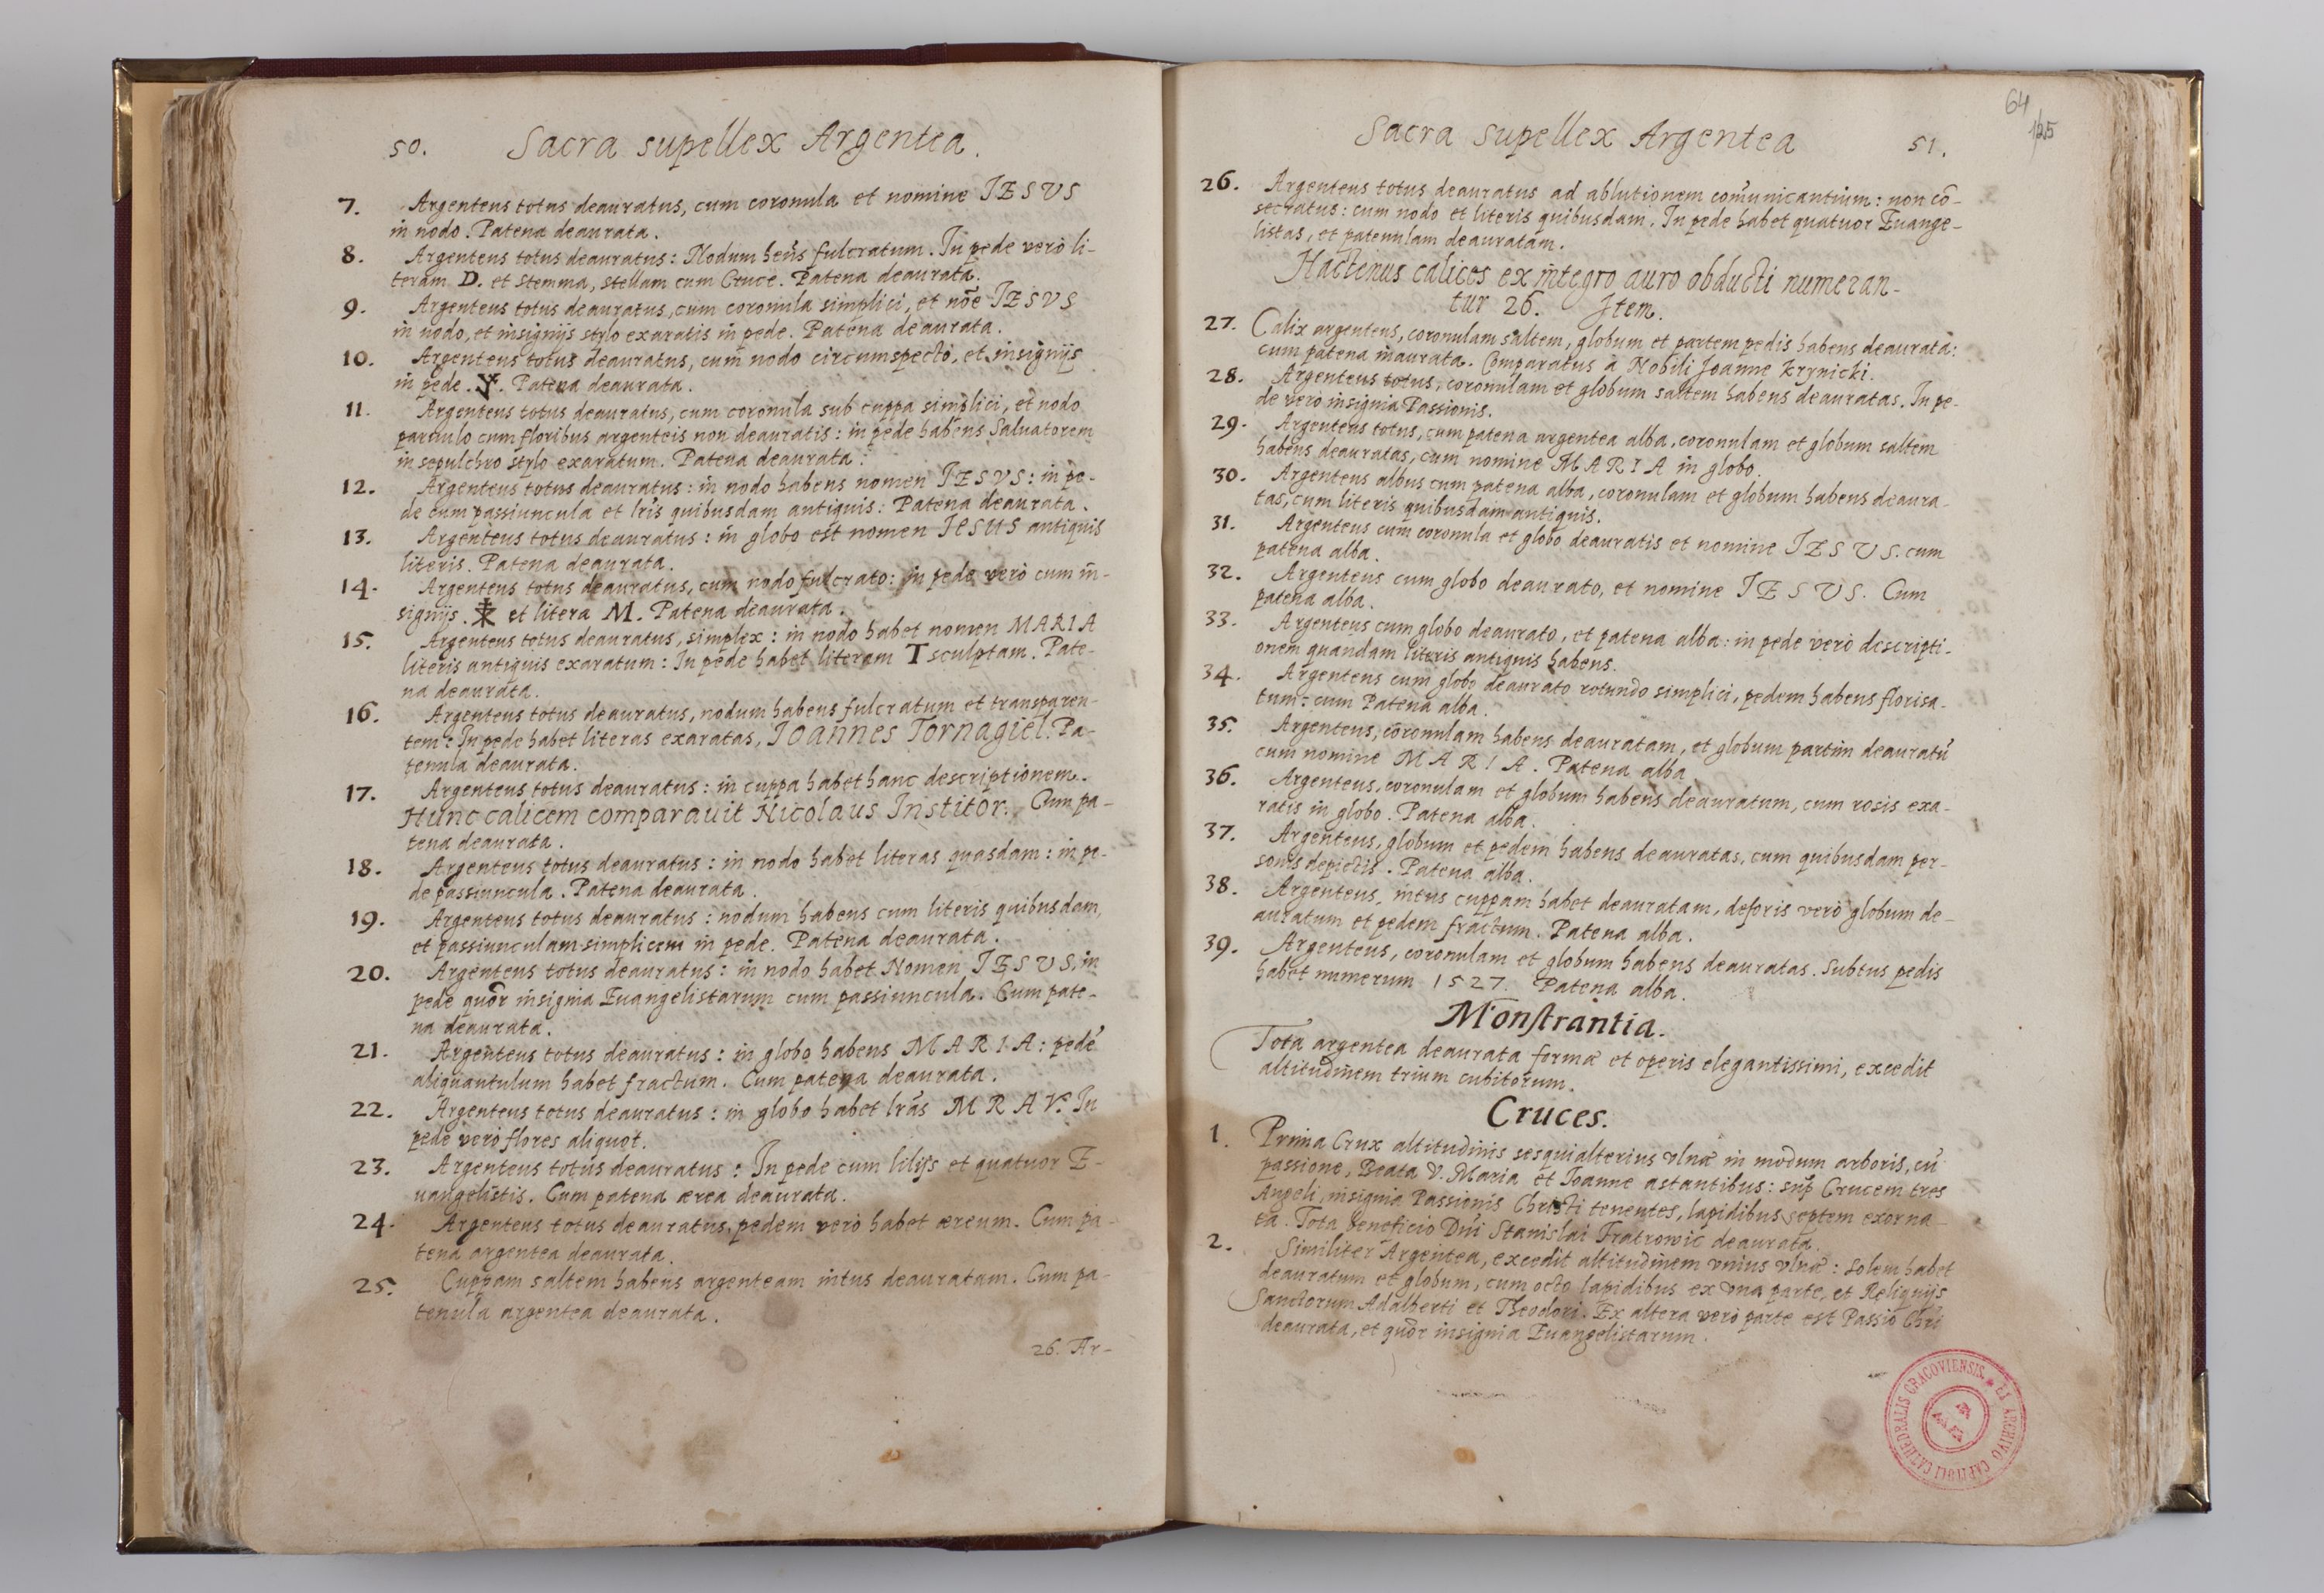 50. Sacra supellex Argentea.
7. Argenteus totus deauratus, cum coronula et nomine IESVS
in nodo. Patena deaurata.
8. Argenteus totus deauratus: Nodum hēns fulcratum. In pede verò li-
teram D. et stemma, stellam cum Cruce. Patena deaurata.
9. Argenteus totus deauratus, cum coronula simplici, et nōe IESVS
in nodo, et insignijs stylo exaratis in pede. Patena deaurata.
10. Argenteus totus deauratus, cum nodo circumspecto, et insignijs
in pede. Patena deaurata.
11. Argenteus totus deauratus, cum coronula sub cuppa simplici, et nodo
paruulo cum floribus argenteis non deauratis: in pede habens Saluatorem
in sepulchro stylo exaratum. Patena deaurata.
12. Argenteus totus deauratus: in nodo habens nomen IESVS: in pe-
de cum passiuncula et lris quibusdam antiquis: Patena deaurata.
13. Argenteus totus deauratus: in globo est nomen IESUS antiquis
literis. Patena deaurata.
14. Argenteus totus deauratus, cum nodo fulcrato: in pede verò cum in-
signijs. et litera M. Patena deaurata.
15. Argenteus totus deauratus, simplex: in nodo habet nomen MARIA
literis antiquis exaratum: In pede habet literam T sculptam. Pate-
na deaurata.
16. Argenteus totus deauratus, nodum habens fulcratum et transparen-
tem: In pede habet literas exaratas, Ioannes Tornagiel. Pa-
tenula deaurata.
17. Argenteus totus deauratus: in cuppa habet hanc descriptionem.
Hunc calicem comparauit Nicolaus Institor. Cum pa-
tena deaurata.
18. Argenteus totus deauratus: in nodo habet literas quasdam: in pe-
de passiuncula. Patena deaurata.
19. Argenteus totus deauratus: nodum habens cum literis quibusdam,
et passiunculam simplicem in pede. Patena deaurata.
20. Argenteus totus deauratus: in nodo habet Nomen IESVS, in
pede quōr insignia Euangelistarum cum passiuncula. Cum pate-
na deaurata.
21. Argenteus totus deauratus: in globo habens MARIA: pedē
aliquantulum habet fractum. Cum patena deaurata.
22. Argenteus totus deauratus: in globo habet lrās M R A V. In
pede verò flores aliquot.
23. Argenteus totus deauratus: In pede cum lilijs et quatuor E-
uangelistis. Cum patena ærea deaurata.
24. Argenteus totus deauratus, pedem verò habet æreum. Cum pa-
tena argentea deaurata.
25. Cuppam saltem habens argenteam intus deauratam. Cum pa-
tenula argentea deaurata.
26. Ar-
64
125
Sacra supellex Argentea 51.
26. Argenteus totus deauratus ad ablutionem com̄unicantium: non cō-
secratus: cum nodo et literis quibusdam. In pede habet quatuor Euange-
listas, et patenulam deauratam.
Hactenus calices ex integro auro obducti numeran-
tur 26. Item.
27. Calix argenteus, coronulam saltem, globum et partem pedis habens deaurata:
cum patena inaurata. Comparatus à Nobili Joanne Krynicki.
28. Argenteus totus, coronulam et globum saltem habens deauratas. In pe-
de verò insignia Passionis.
29. Argenteus totus, cum patena argentea alba, coronulam et globum saltem
habens deauratas, cum nomine MARIA in globo.
30. Argenteus albus cum patena alba, coronulam et globum habens deaura-
tas, cum literis quibusdam antiquis.
31. Argenteus cum coronula et globo deauratis et nomine IESVS. cum
patena alba.
32. Argenteus cum globo deaurato, et nomine IESVS. Cum
patena alba.
33. Argenteus cum globo deaurato, et patena alba: in pede verò descripti-
onem quandam literis antiquis habens.
34. Argenteus cum globo deaurato rotundo simplici, pedem habens florisa-
tum: cum Patena alba.
35. Argenteus, coronulam habens deauratam, et globum partim deauratū
cum nomine MARIA. Patena alba
36. Argenteus, coronulam et globum habens deauratum, cum rosis exa-
ratis in globo. Patena alba.
37. Argenteus, globum et pedem habens deauratas, cum quibusdam per-
sonis depictis. Patena alba.
38. Argenteus, intus cuppam habet deauratam, deforis verò globum de-
auratum et pedem fractum. Patena alba.
39. Argenteus, coronulam et globum habens deauratas. Subtus pedis
habet numerum 1527. Patena alba.
Monstrantia.
Tota argentea deaurata formæ et operis elegantissimi, excedit
altitudinem trium cubitorum.
Cruces.
1. Prima Crux altitudinis sesquialterius vlnæ in modum arboris, cū
passione, Beata V. Maria et Ioanne astantibus: sup Crucem tres
Angeli, insignia Passionis Christi tenentes, lapidibus septem exorna-
ta. Tota beneficio Dni Stanislai Fratrowic deaurata.
2. Similiter Argentea, excedit altitudinem vnius vlnæ: solem habet
deauratum et globum, cum octo lapidibus ex vna parte, et Reliquijs
Sanctorum Adalberti et Theodori. Ex altera verò parte est Passio Chri
deaurata, et quōr insignia Euangelistarum.
EX ARCHIVO CAPITULI CATHEDRALIS CRACOVIENSIS